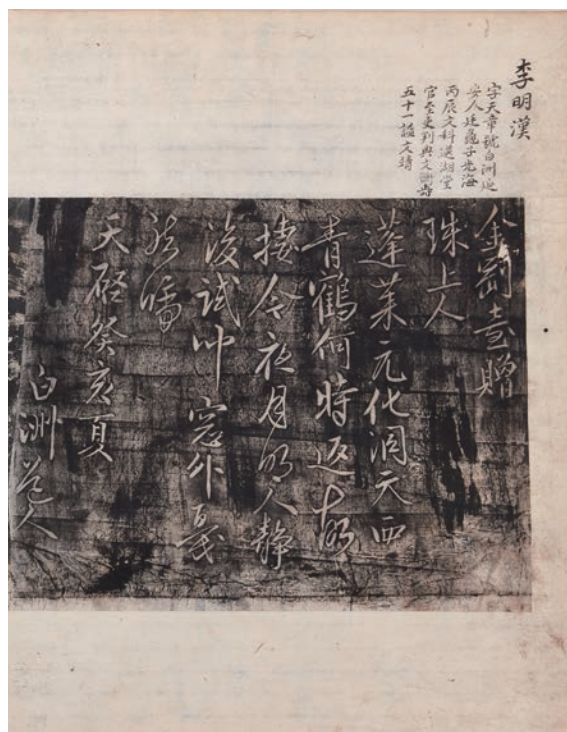 李明漢
字天章號白洲延
安人廷龜子光海
丙辰文科選湖堂
官至吏判典文衡壽
五十一諡文靖
金剛臺贈
珠上人
蓬萊元化洞天西
青鶴何時返
棲今夜月明人靜
後試聽窓外戛
然啼
天啓癸亥夏
白洲人